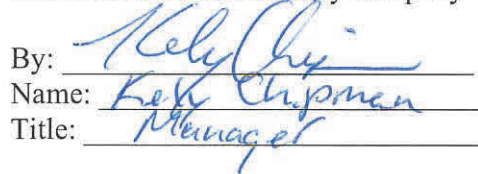 By: Kely Chipman
Name: Kely Chipman
Title: Manager